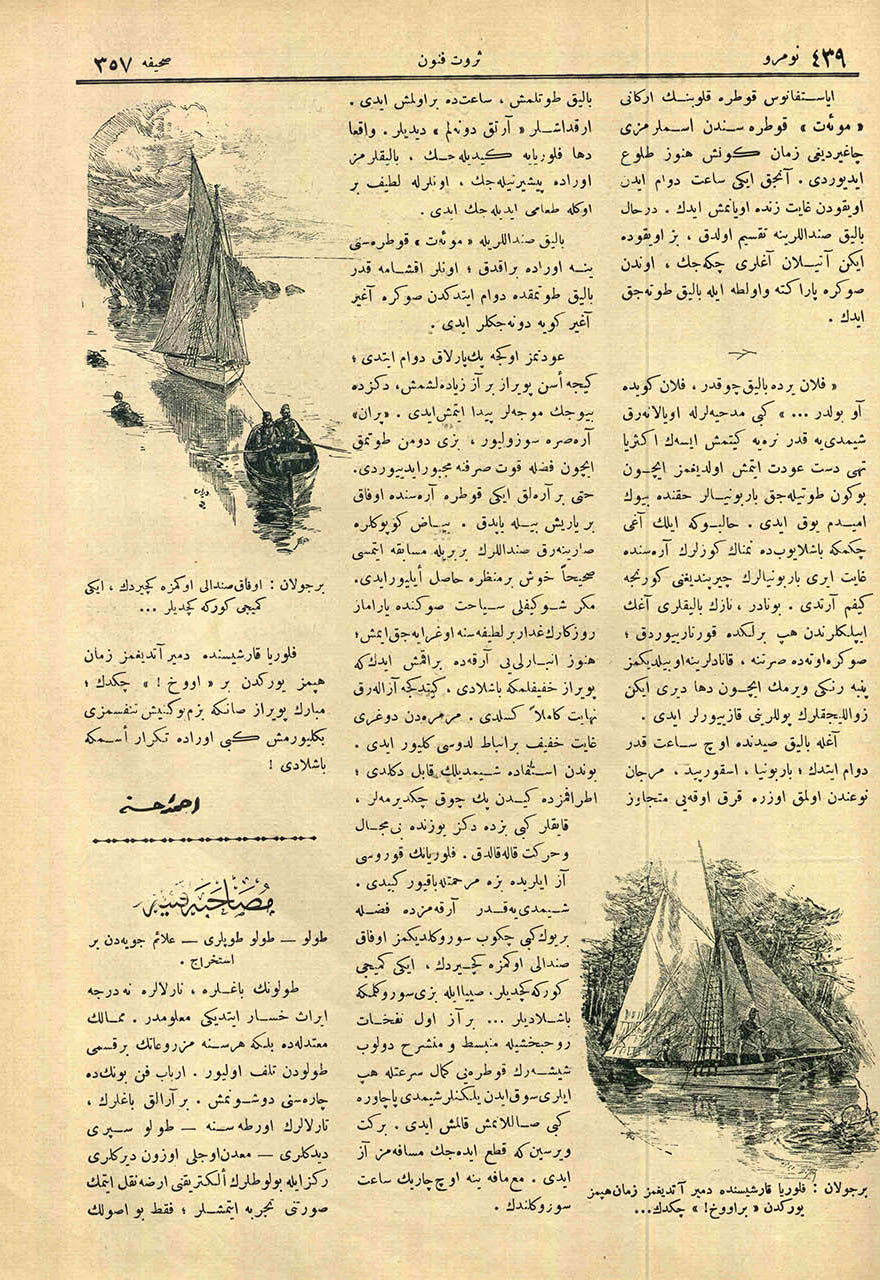 نومرو ٤٣٩
ثروت فنون
صحيفه ٣٥٧
اياستفانوس قوطره قلوبنك اركانى
« موئه‌ت » قوطره سندن اسملرمزى
چاغيرديغى زمان كونش هنوز طلوع
ايديوردى . آنجق ايكى ساعت دوام ايدن
اويقودن غايت زنده اويانمش ايدك . درحال
باليق صنداللرينه تقسيم اولدق ، بز اويقوده
ايكن آتيلان آغلرى چكه‌جك ، اوندن
صوكره پاراكته واولطه ايله باليق طوته‌جق
ايدك .
« فلان يرده باليق چوقدر ، فلان كويده
آو بولدر ... » كبى مدحيه‌لرله اويالانه‌رق
شيمدى‌يه قدر نره‌يه كيتمش ايسه‌ك اكثريا
تهى دست عودت ايتمش اولديغمز ايچون
بوكون طوتيله‌جق باربونيالر حقنده بيوك
اميدم يوق ايدى . حالبوكه ايلك آغى
چكمكه باشلايوب‌ده نمناك كوزلرك آره‌سنده
غايت ايرى باربونيالرك چيرپنديغنى كورنجه
كيفم آرتدى . بونادر ، نازك باليقلرى آغك
ايپلكلرندن هپ برلكده قورتارييوردق ؛
صوكره اوته‌ده صرتنه ، قنادلرينه اوبيلديكمز
پنبه رنكى ويرمك ايچون دها ديرى ايكن
زواللیجقلرك پوللرينى قازييورلر ايدى .
آغله باليق صيدنده اوچ ساعت قدر
دوام ايتدك ؛ باربونيا ، اسقورپيد ، مرجان
نوعندن اولمق اوزره قرق اوقه‌يى متجاوز
برجولان : فلوريا قارشيسنده دمير آتديغمز زمان هپمز
يوركدن « براووخ! » چكدك...
باليق طوتلمش ، ساعت‌ده براولمش ايدى .
ارقداشلر « آرتق دونه‌لم » ديديلر . واقعا
دها فلوريايه كيديله‌جك ، باليقلرمز
اوراده پيشيرتيله‌جك ، اونلرله لطيف بر
اوكله طعامى ايديله‌جك ايدى .
باليق صنداللريله « موئه‌ت » قوطره‌سنى
ينه اوراده براقدق ؛ اونلر اقشامه قدر
باليق طوتمقده دوام ايتدكدن صوكره آغير
آغير كويه دونه‌جكلر ايدى .
عودتمز اوكجه پك پارلاق دوام ايتدى ؛
كيجه أسن پويراز بر آز زياده‌لشمش، دكزده
بيوجك موجه‌لر پيدا ايتمش‌ايدى . «پران»
آره‌صره سوزوليور ، بزى دومن طوتمق
ايچون فضله قوت صرفنه مجبورايدييوردى.
حتى بر آره‌لق ايكى قوطره آره‌سنده اوفاق
بر ياريش بيله ياپدق . بياض كوپوكلره
صارينه‌رق صنداللرك بربريله مسابقه ايتمسى
صحيحاً خوش برمنظره حاصل أيليورايدى.
مكر شوكيفلى سياحت صوكنده ياراماز
روزكارك غدار برلطيفه‌سنه اوغرايه‌جق‌ايمش؛
هنوز انبارلى‌يى آرقه‌ده براقمش ايدك‌كه
پويراز خفيفلمكه باشلادى . كيتدكجه آزاله‌رق
نهايت كاملاً كسلدى . مرمره‌دن دوغرى
غايت خفيف برانباط لدوسى كليور ايدى .
بوندن استفاده شيمديلك قابل دكلدى ؛
اطرافمزده كيدن پك چوق چكديرمه‌لر ،
قايقلر كبى بزده دكز يوزنده بى‌مجال
وحركت قاله‌قالدق . فلوريانك قوروسى
آز ايلريده بزه مرحمتله باقيور كبيدى .
شيمدى‌يه‌قدر آرقه‌مزده فضله
بريوك كبى چكوب سوروكلديكمز اوفاق
صندالى اوكمزه كچيردك ، ايكى كميجى
كوركه كچديلر. صيبيا ايله بزى سوروكلمكه
باشلاديلر ... بر آز اول نفخات
روحبخشيله منبسط و منشرح دولوب
شيشه‌رك قوطره‌يى كمال سرعتله هپ
ايلرى سوق‌ايدن يلكنلر شيمدى پاچاوره
كبى صاللانمش قالمش ايدى . بركت
ويرسين كه قطع ايده‌جك مسافه‌مز آز
ايدى . مع‌مافه ينه اوچ چاريك ساعت
سوروكلندك .
برجولان : اوفاق صندالى اوكمزه كچيردك ، ايكى
كميجى كوركه كچديلر ...
فلوريا قارشيسنده دمير آتديغمز زمان
هپمز يوركدن بر « اووخ ! » چكدك ؛
مبارك پويراز صانكه بزم بوكنيش تنفسمزى
بكليورمش كبى اوراده تكرار أسمكه
باشلادى !
احمد احسان
مصاحبه فنيه
طولو — طولو طوپلرى — علائم جويه‌دن بر
استخراج .
طولونك باغلره ، تارلالره نه‌درجه
ايراث خسار ايتديكى معلومدر . ممالك
معتدله‌ده بلكه هرسنه مزروعاتك برقسمى
طولودن تلف اوليور . ارباب فن بونك‌ده
چاره‌سنى دوشونمش . بر آرالق باغلرك ،
تارلالرك اورطه‌سنه — طولو سپرى
ديدكلرى — معدن‌اوجلى اوزون ديركلرى
ركزايله بولوطلرك ألكتريقنى ارضه نقل ايتمك
صورتنى تجربه ايتمشلر ؛ فقط بو اصولك